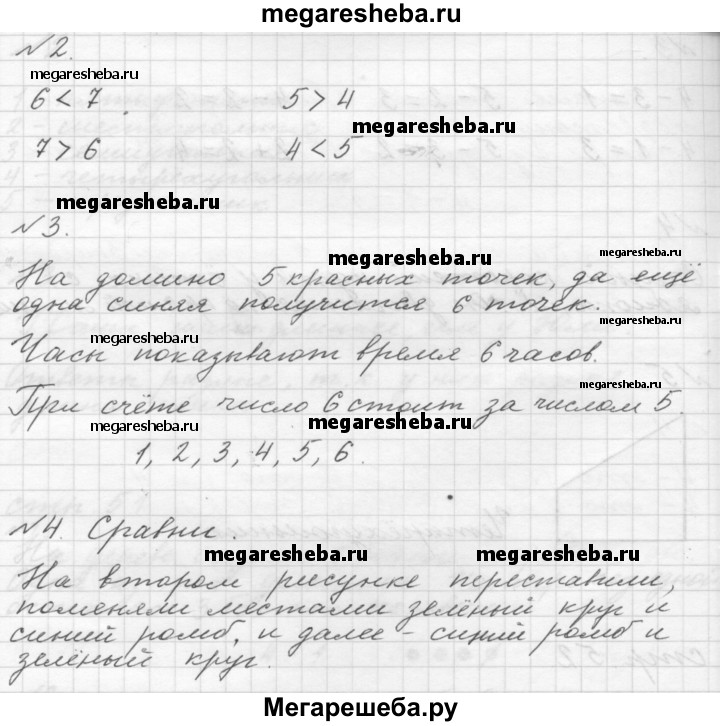 megaresheba.ru
№2.
megaresheba.ru
6 < 7 5 > 4
megaresheba.ru
7 > 6 4 < 5
megaresheba.ru
№3.
megaresheba.ru
megaresheba.ru
На домино 5 красных точек, да ещё
одна синяя получится 6 точек.
megaresheba.ru
megaresheba.ru
Часы показывают время 6 часов.
megaresheba.ru
При счёте число 6 стоит за числом 5.
megaresheba.ru megaresheba.ru
1, 2, 3, 4, 5, 6.
№4. Сравни.
megaresheba.ru megaresheba.ru
На втором рисунке переставили,
поменяли местами зелёный круг и
синий ромб, и далее - синий ромб и
зелёный круг.
Мегарешеба.ру